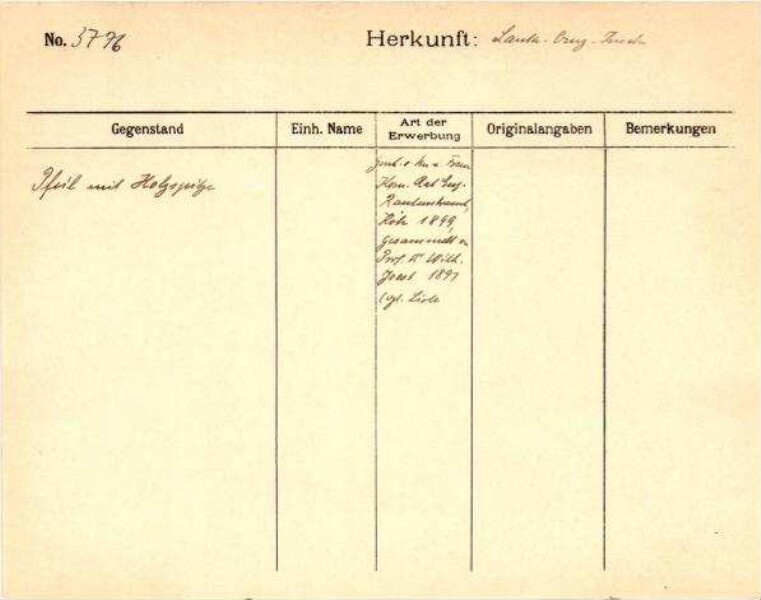 No. 3796
Herkunft: Santa-Cruz-Inseln
Gegenstand
Einh. Name
Art der Erwerbung
Originalangaben
Bemerkungen
Pfeil mit Holzspitze
Frau
Kom. Rat Eug.
Rautenstrauch,
Köln 1899,
gesammelt v.
Prof. Dr Wilh.
Joest 1897
(vgl. Liste